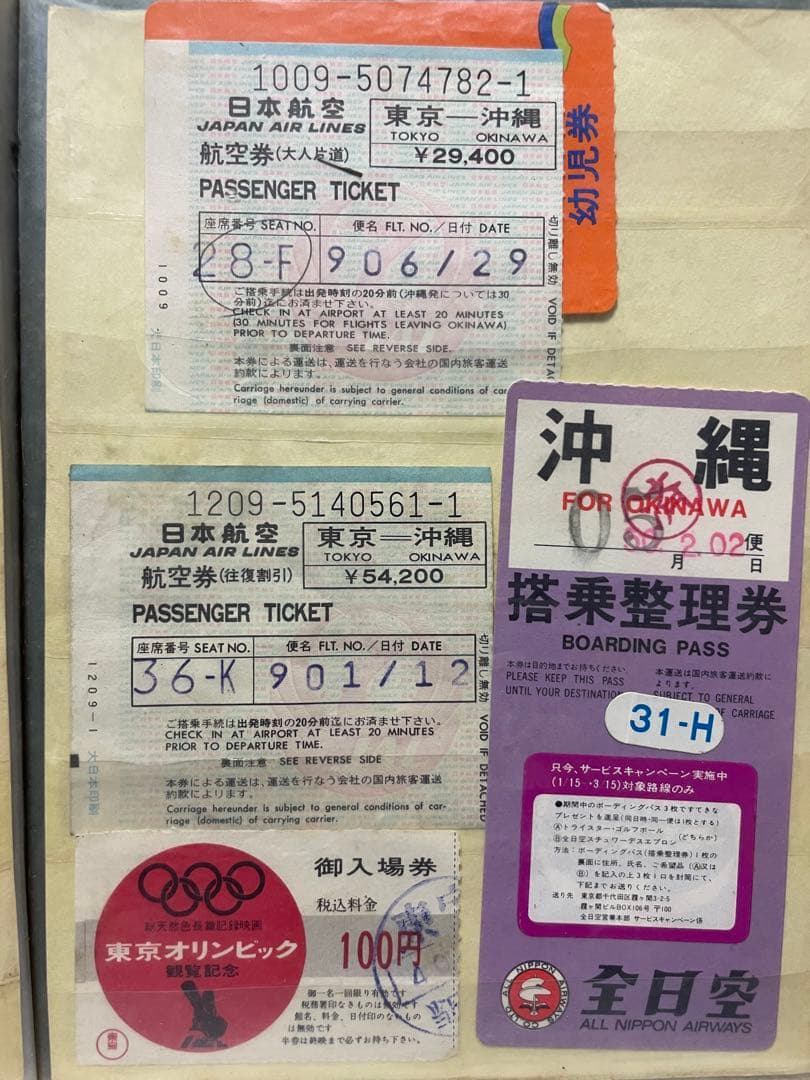 1009-5074782-1
日本航空
JAPAN AIR LINES
東京—沖縄
TOKYO OKINAWA
¥29,400
航空券(大人片道)
PASSENGER TICKET
座席番号 SEAT NO.
便名 FLT. NO./日付 DATE
28-F
906/29
ご搭乗手続は出発時刻の20分前(沖縄発については30
分前)迄にお済ませ下さい。
CHECK IN AT AIRPORT AT LEAST 20 MINUTES
(30 MINUTES FOR FLIGHTS LEAVING OKINAWA)
PRIOR TO DEPARTURE TIME.
裏面注意 SEE REVERSE SIDE.
本券による運送は、運送を行なう会社の国内旅客運送
約款によります。
Carriage hereunder is subject to general conditions of car-
riage (domestic) of carrying carrier.
切り離し無効 VOID IF DETAC
1009
大日本印刷
幼児券
1209-5140561-1
日本航空
JAPAN AIR LINES
東京=沖縄
TOKYO OKINAWA
¥54,200
航空券(往復割引)
PASSENGER TICKET
座席番号 SEAT NO.
便名 FLT. NO./日付 DATE
36-K
901/12
ご搭乗手続は出発時刻の20分前迄にお済ませ下さい。
CHECK IN AT AIRPORT AT LEAST 20 MINUTES
PRIOR TO DEPARTURE TIME.
裏面注意 SEE REVERSE SIDE
本券による運送は、運送を行なう会社の国内旅客運送
約款によります。
Carriage hereunder is subject to general conditions of car-
riage (domestic) of carrying carrier.
切り離し無効 VOID IF DETACHED
1209-1
大日本印刷
沖縄
FOR OKINAWA
2.02
便
月 日
搭乗整理券
BOARDING PASS
本券は目的地までお持ちください
PLEASE KEEP THIS PASS
UNTIL YOUR DESTINATION
本運送は国内旅客運送約款に
よります。
SUBJECT TO GENERAL
OF CARRIAGE
31-H
只今、サービスキャンペーン実施中
(1/15→3/15)対象路線のみ
●期間中のボーディングパス3枚ですてきな
プレゼントを進呈(同日時・同一便は1枚とする)
Ⓐトライスター・ゴルフボール
Ⓑ全日空スチュワーデスエプロン
(どちらか)
方法:ボーディングパス(搭乗整理券)1枚の
裏面に住所、氏名、ご希望品(Ⓐ又は
Ⓑ)を記入の上3枚1口を封筒にて、
下記までお送りください。
送り先 東京都千代田区霞ヶ関3-2-5
霞ヶ関ビルBOX106号 〒100
全日空営業本部 サービスキャンペーン係
ALL NIPPON AIRWAYS CO LTD
全日空
ALL NIPPON AIRWAYS
総天然色長篇記録映画
東京オリンピック
観覧記念
御入場券
税込料金
100円
御一名一回限り有効です
税務署印なきものは無効です
館名、料金、日付印のないもの
は無効です
半券は終映まで必ずお持ち下さい。